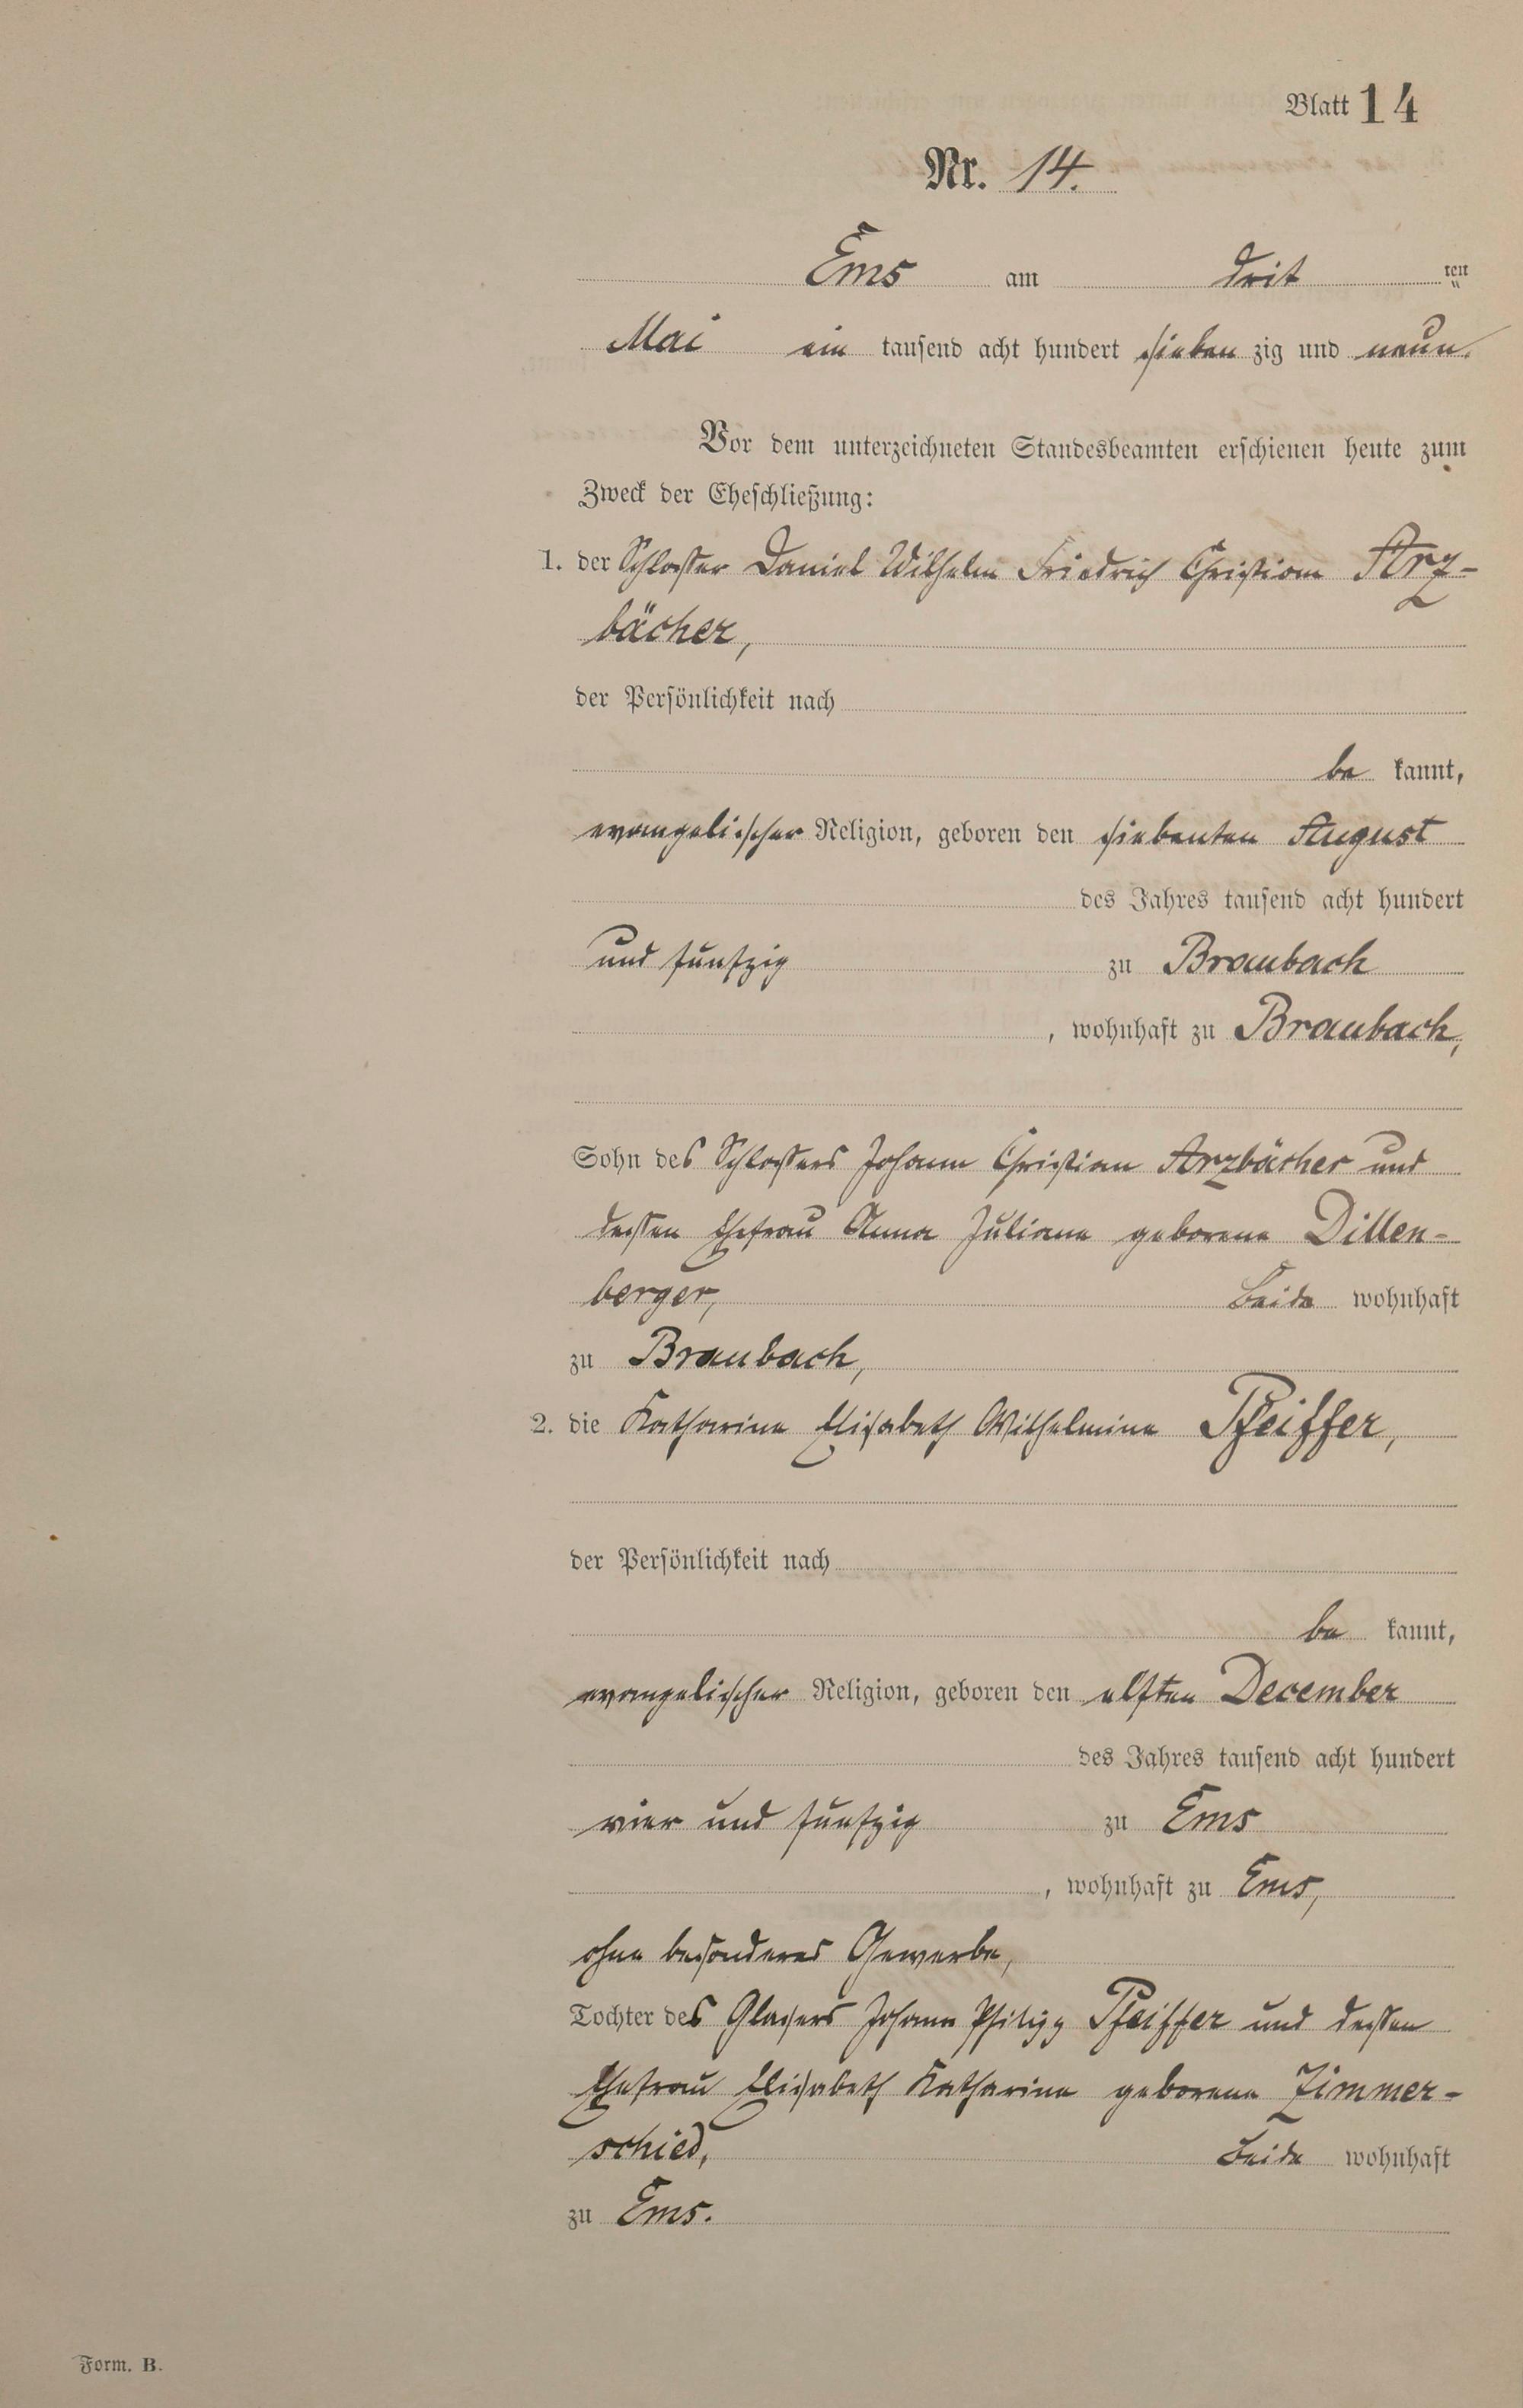 Blatt 14
Nr. 14.
Ems am drit ten
Mai ein tausend acht hundert sieben zig und neun.
Vor dem unterzeichneten Standesbeamten erschienen heute zum
Zweck der Eheschließung:
1. der Schlosser Daniel Wilhelm Friedrich Christian Arz-
bächer,
der Persönlichkeit nach
be kannt,
evangelischer Religion, geboren den siebenten August
des Jahres tausend acht hundert
und fünfzig zu Braubach
, wohnhaft zu Braubach,
Sohn des Schlossers Johann Christian Arzbächer und
dessen Ehefrau Anna Juliane geborene Dillen-
berger, Beide wohnhaft
zu Braubach,
2. die Katharine Elisabeth Wilhelmine Pfeiffer,
der Persönlichkeit nach
be kannt,
evangelischer Religion, geboren den elften December
des Jahres tausend acht hundert
vier und fünfzig zu Ems
, wohnhaft zu Ems,
ohne besonderes Gewerbe,
Tochter des Glasers Johann Philipp Pfeiffer und dessen
Ehefrau Elisabeth Katharine geborene Zimmer-
schied, Beide wohnhaft
zu Ems.
Form. B.